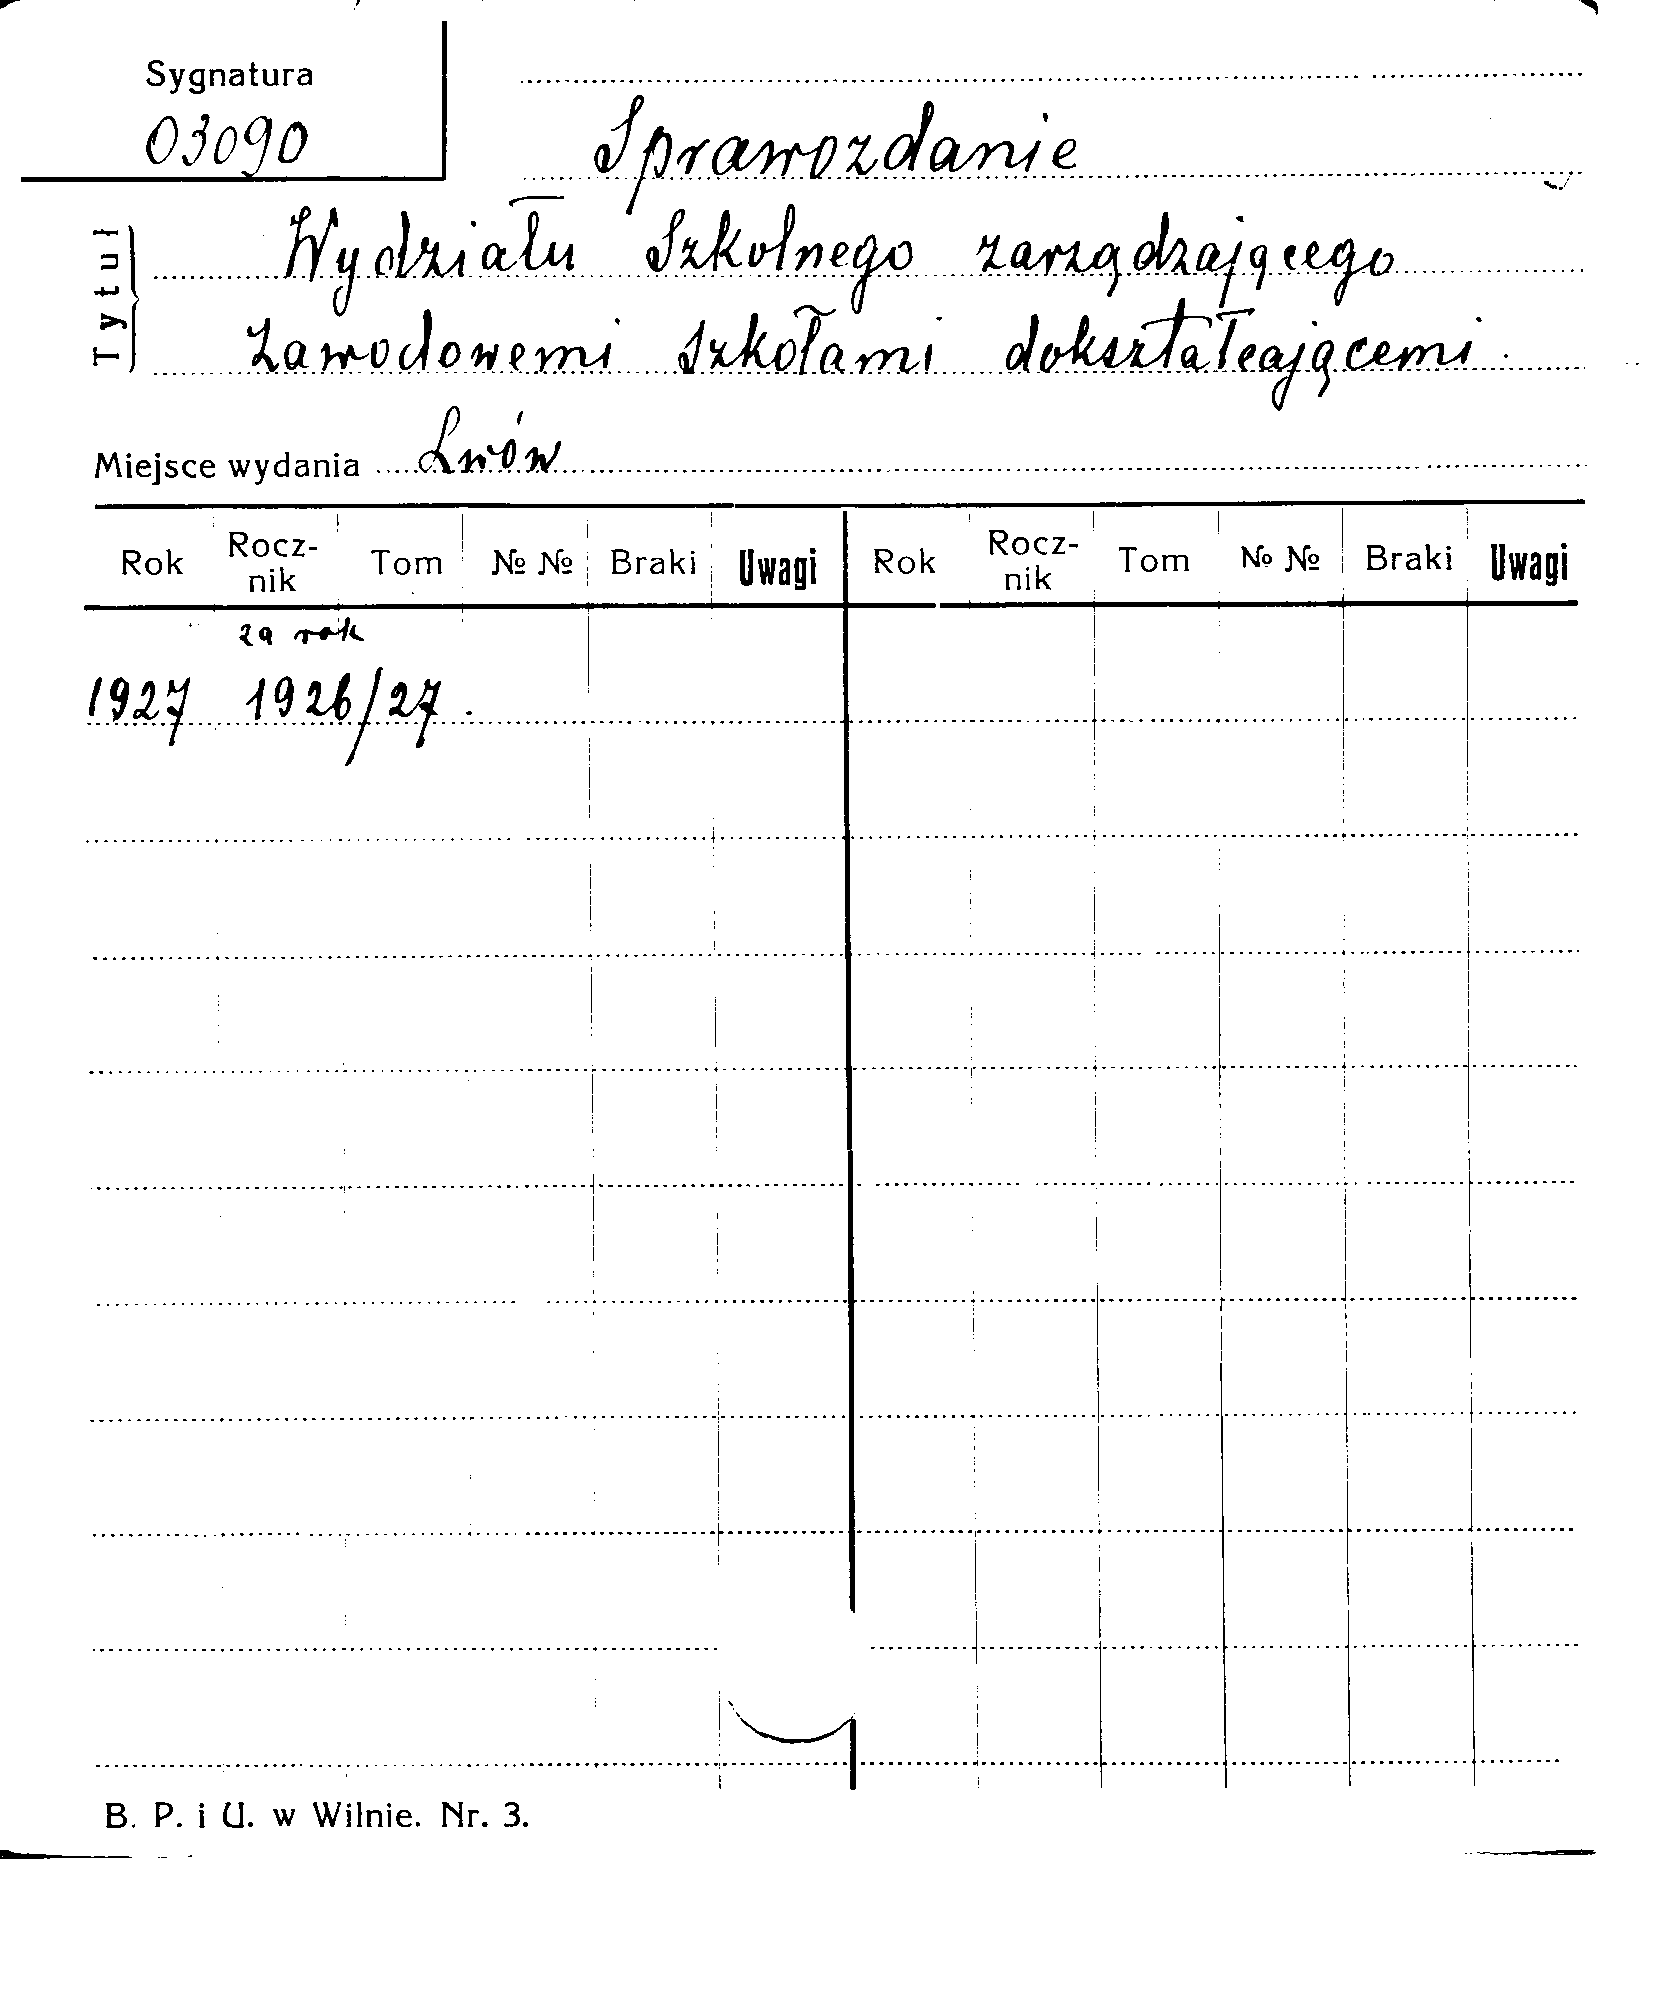 Sygnatura
03090
Sprawozdanie
Tytuł
Wydziału Szkolnego zarządzającego
Zawodowemi Szkołami dokształcającemi.
Miejsce wydania Lwów
Rok Rocz-nik Tom № № Braki Uwagi Rok Rocz-nik Tom № № Braki Uwagi
za rok
1927 1926/27.
B. P. i U. w Wilnie. Nr. 3.